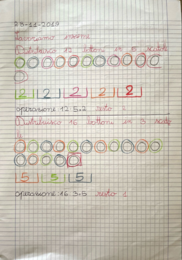 25-11-2019
Lavoriamo insieme
Distribuisco 12 bottoni in 5 scatole
2 2 2 2 2
operazione 12 5=2 resto 2
Distribuisco 16 bottoni in 3 scatole
5 5 5
operazione 16 3=5 resto 1